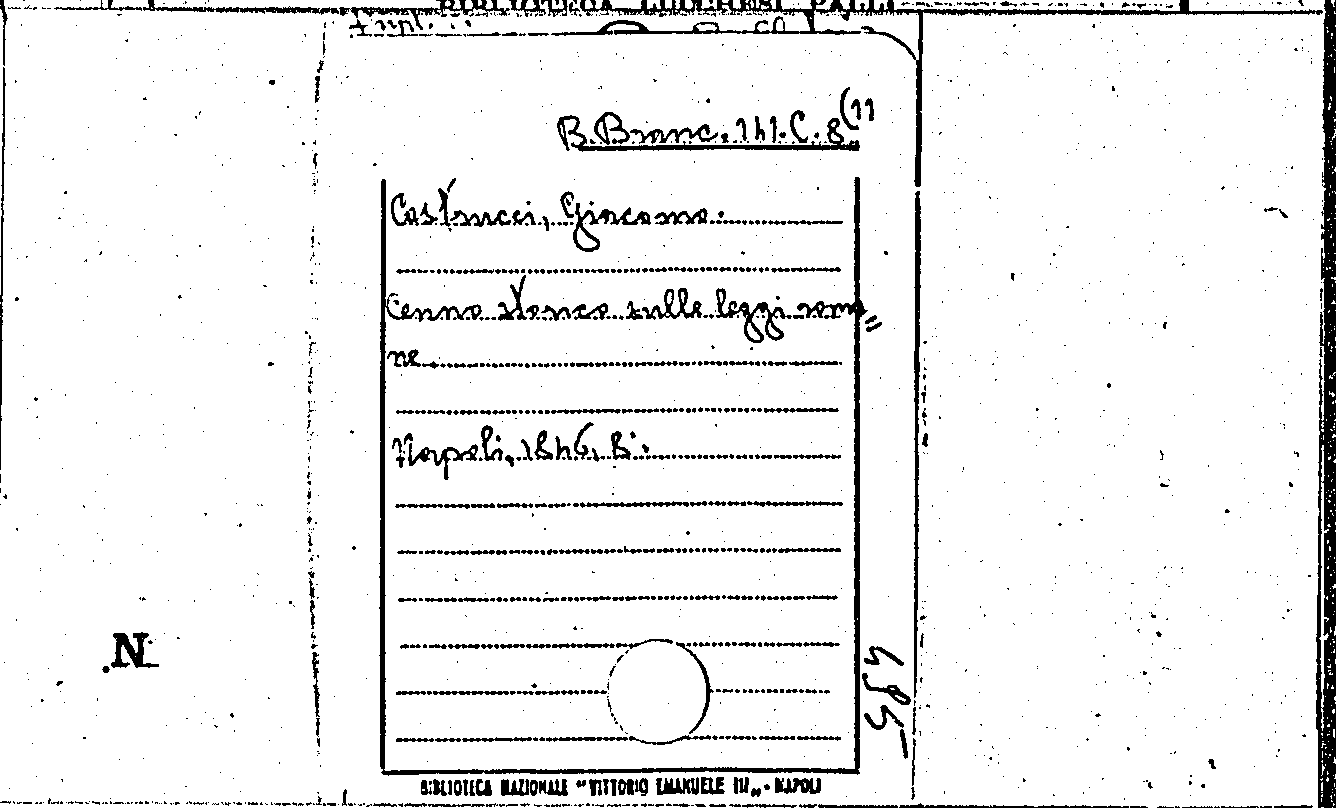 BIBLIOTECA LUCCHESI PALLI
B. Branc. 141. C. 8 (11
Castrucci, Giacomo.
Cenno storico sulle leggi roma=
ne.
Napoli, 1846, 8°.
N
485
BIBLIOTECA NAZIONALE "VITTORIO EMANUELE III„ - NAPOLI